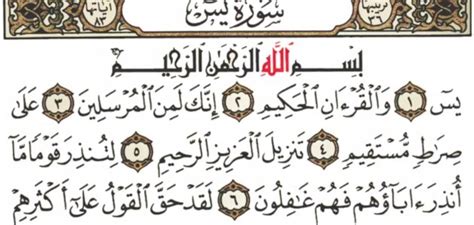 آياتها ٨٣
سورة يس
ترتيبها ٣٦
بِسْمِ ٱللَّهِ ٱلرَّحْمَٰنِ ٱلرَّحِيمِ
يسٓ ١ وَٱلْقُرْءَانِ ٱلْحَكِيمِ ٢ إِنَّكَ لَمِنَ ٱلْمُرْسَلِينَ ٣ عَلَىٰ
صِرَٰطٍ مُّسْتَقِيمٍ ٤ تَنزِيلَ ٱلْعَزِيزِ ٱلرَّحِيمِ ٥ لِتُنذِرَ قَوْمًا مَّآ
أُنذِرَ ءَابَآؤُهُمْ فَهُمْ غَٰفِلُونَ ٦ لَقَدْ حَقَّ ٱلْقَوْلُ عَلَىٰٓ أَكْثَرِهِمْ